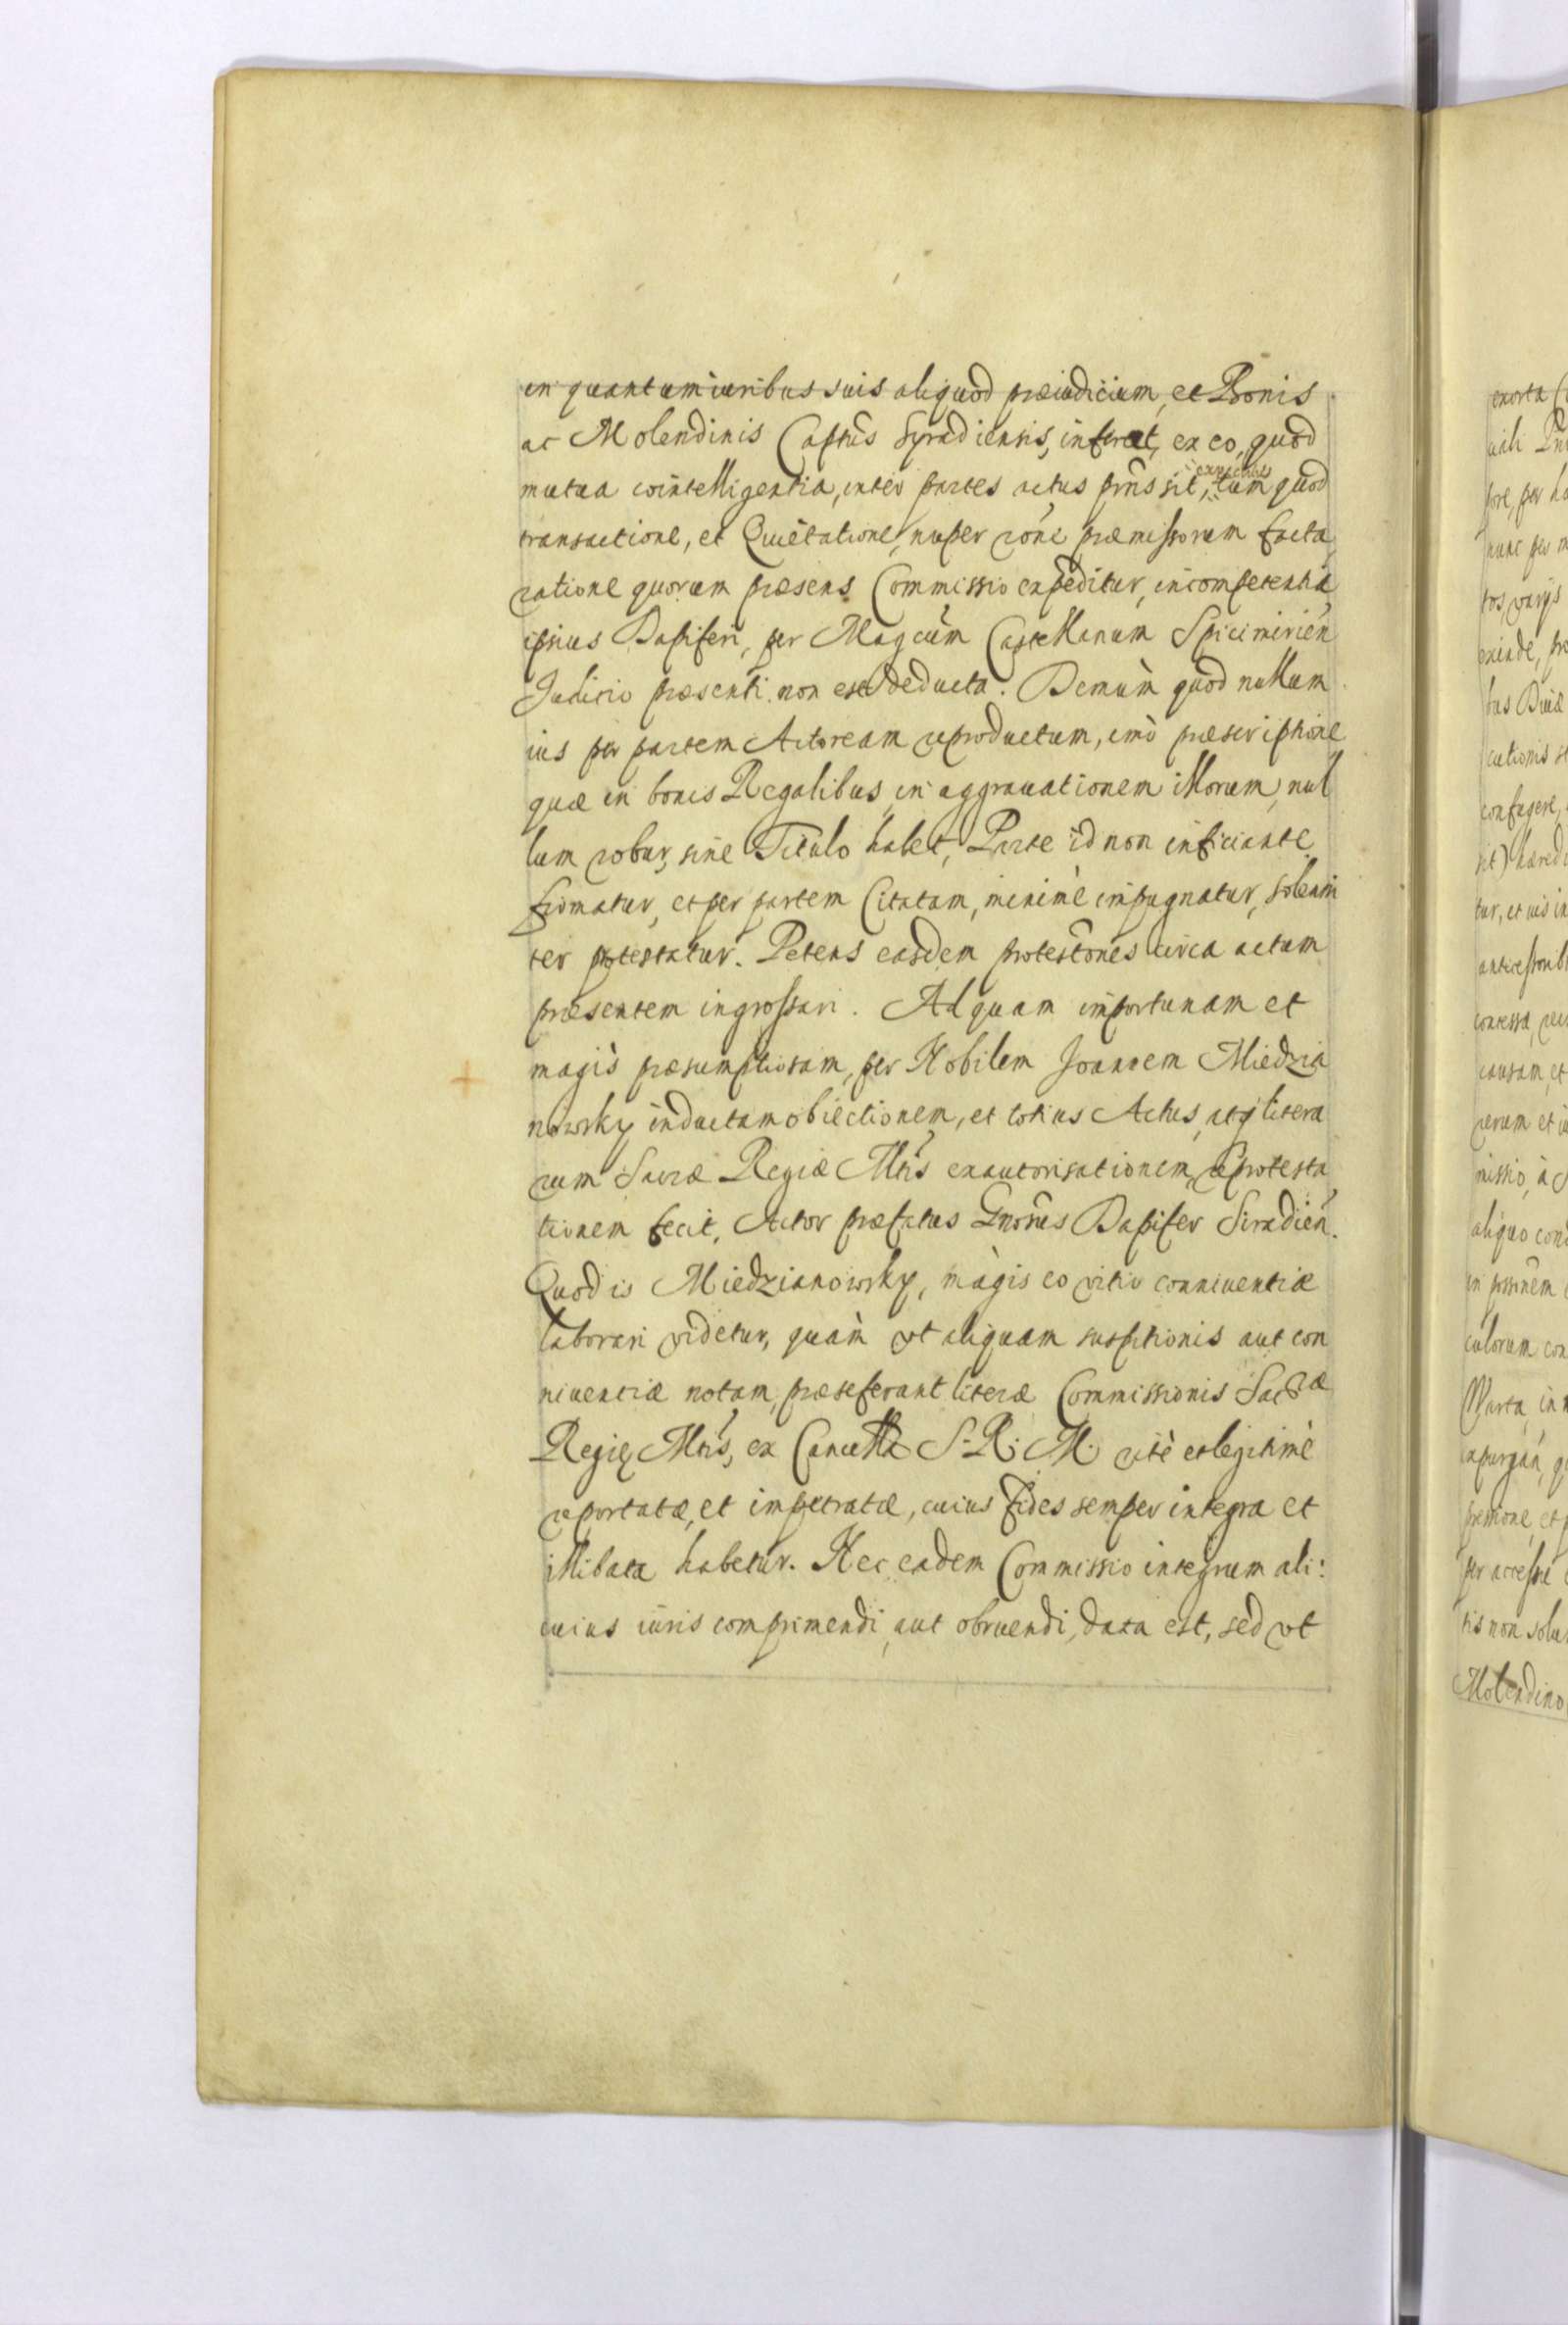 in quantum iuribus suis aliquod præiudicium, et Bonis
ac Molendinis Castrũs Syradiensis, inferat, ex eo, quod
mutua cointelligentia, inter partes actus prñs sit, tum quod
transactione, et Quietatione, nuper rõne præmissorum facta,
ratione quorum præsens Commissio expeditur, incompetentia
ipsius Dapiferi, per Magcum Castellanum Spicimirien
Judicio præsenti non est deducta. Demùm quod nullum
ius per partem Actoream reproductum, imò præscriptione
quæ in bonis Regalibus, in aggrauationem illorum, nul
lum robur, sine Titulo habet, Parte id non inficiante
firmatur, et per partem Citatam, minimè impugnatur, solenni
ter protestatur. Petens easdem protestones circa actum
præsentem ingrossari. Ad quam importunam et
magis præsumptiosam, per Nobilem Joannem Miedzia
nowsky inductam obiectionem, et totius Actus, atq litera
rum Sacræ Regiæ Mtis exautorisationem, reprotesta
tionem fecit, Actor præfatus Gnosus Dapifer Siradien.
Quod is Miedzianowsky, màgis eo vitio conniuentiæ
laborari videtur, quàm vt aliquam suspitionis aut con
niuentiæ notam, præseferant literæ Commissionis Sacræ
Regię Mtis, ex Cancella S. R. M. ritè et legitimè
reportatæ, et impetratæ, cuius fides semper integra et
illibata habetur. Nec eadem Commissio integrum ali:
cuius iuris comprimendi, aut obruendi, data est, sed vt